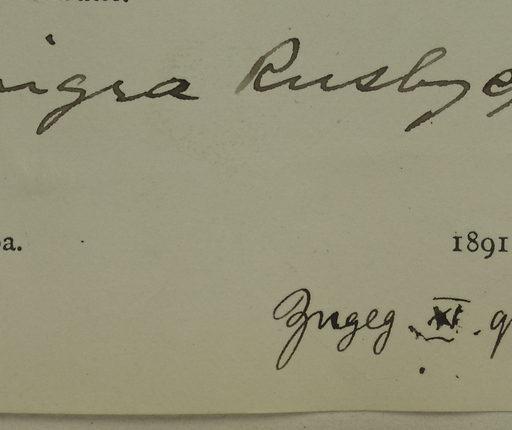 nigra Rusby
a. 1891
Zugeg. XI. 9